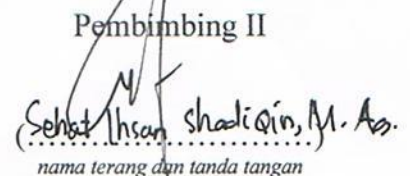 Pembimbing II
(Sehat Ihsan Shadiqin, M. Ag.)
nama terang dan tanda tangan